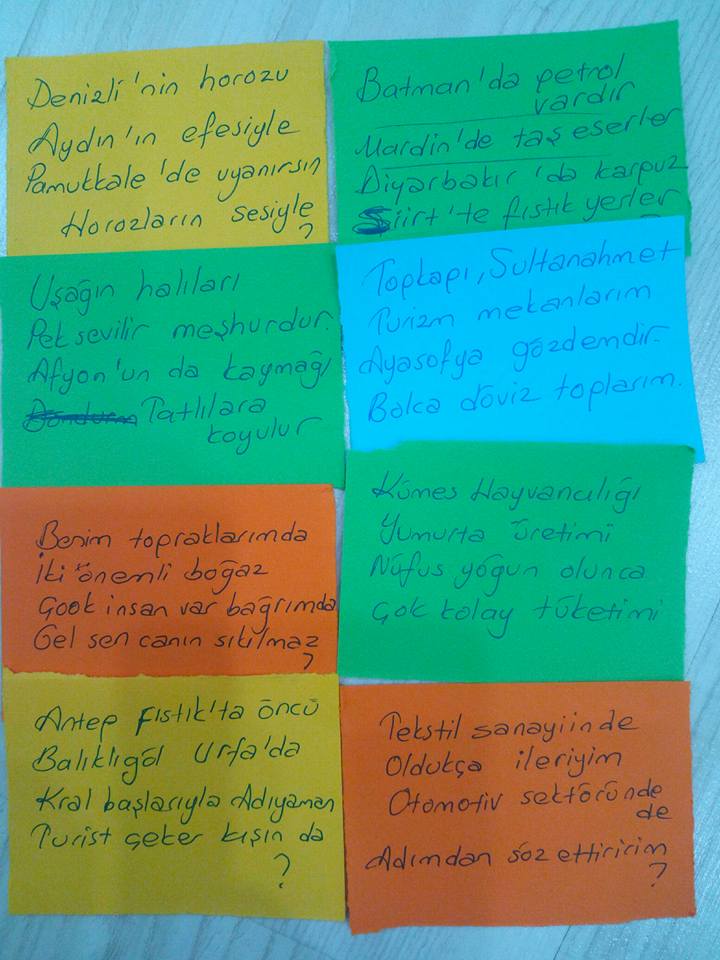 Denizli'nin horozu
Aydın'ın efesiyle
Pamukkale'de uyanırsın
Horozların sesiyle
?
Batman'da petrol
vardır
Mardin'de taş eserler
Diyarbakır'da karpuz
Siirt'te fıstık yerler
?
Uşağın halıları
Pek sevilir meşhurdur.
Afyon'un da kaymağı
Tatlılara
koyulur
Topkapı, Sultanahmet
Turizm mekanlarım
Ayasofya gözdemdir.
Bolca döviz toplarım.
Benim topraklarımda
İki önemli boğaz
Çook insan var bağrımda
Gel sen canın sıkılmaz
?
Kümes Hayvancılığı
Yumurta üretimi
Nüfus yoğun olunca
Çok kolay tüketimi
Antep Fıstık'ta öncü
Balıklıgöl Urfa'da
Kral başlarıyla Adıyaman
Turist çeker kışın da
?
Tekstil sanayiinde
Oldukça ileriyim
Otomotiv sektöründe
de
Adımdan söz ettiririm
?